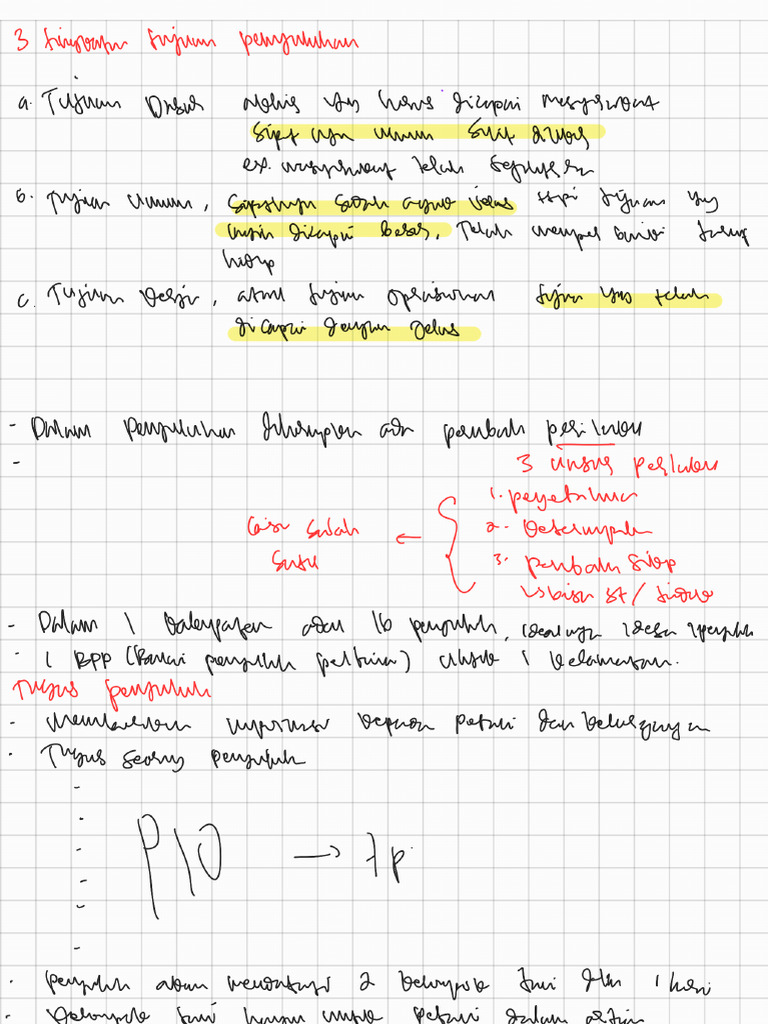 3 tingkatan tujuan penyuluhan
a. Tujuan Dasar yang harus dicapai masyarakat
sifatnya umum
ex. masyarakat telah sejahtera
b. Tujuan Umum, tapi tujuan yg
ingin dicapai bebas. Telah taraf
hidup
c. Tujuan kerja, atau tujuan operasional tujuan yg telah
dicapai dengan jelas
- Dalam penyuluhan diharapkan ada perubah perilaku
-
3 unsur perilaku
1. pengetahuan
2. keterampilan
3. perubah sikap
bisa salah ←
satu
- Dalam 1 kabupaten ada 16 penyuluh, idealnya 1 desa 1 penyuluh
- 1 BPP (Balai penyuluh pertanian) untuk 1 kecamatan.
Tugas penyuluh
- memberikan informasi kepada petani dan keluarganya
- Tugas seorang penyuluh
-
-
-
-
-
-
P10 → 7p
- penyuluh akan mendatangi 2 kelompok tani dlm 1 hari
- kelompok tani hanya untuk petani dalam